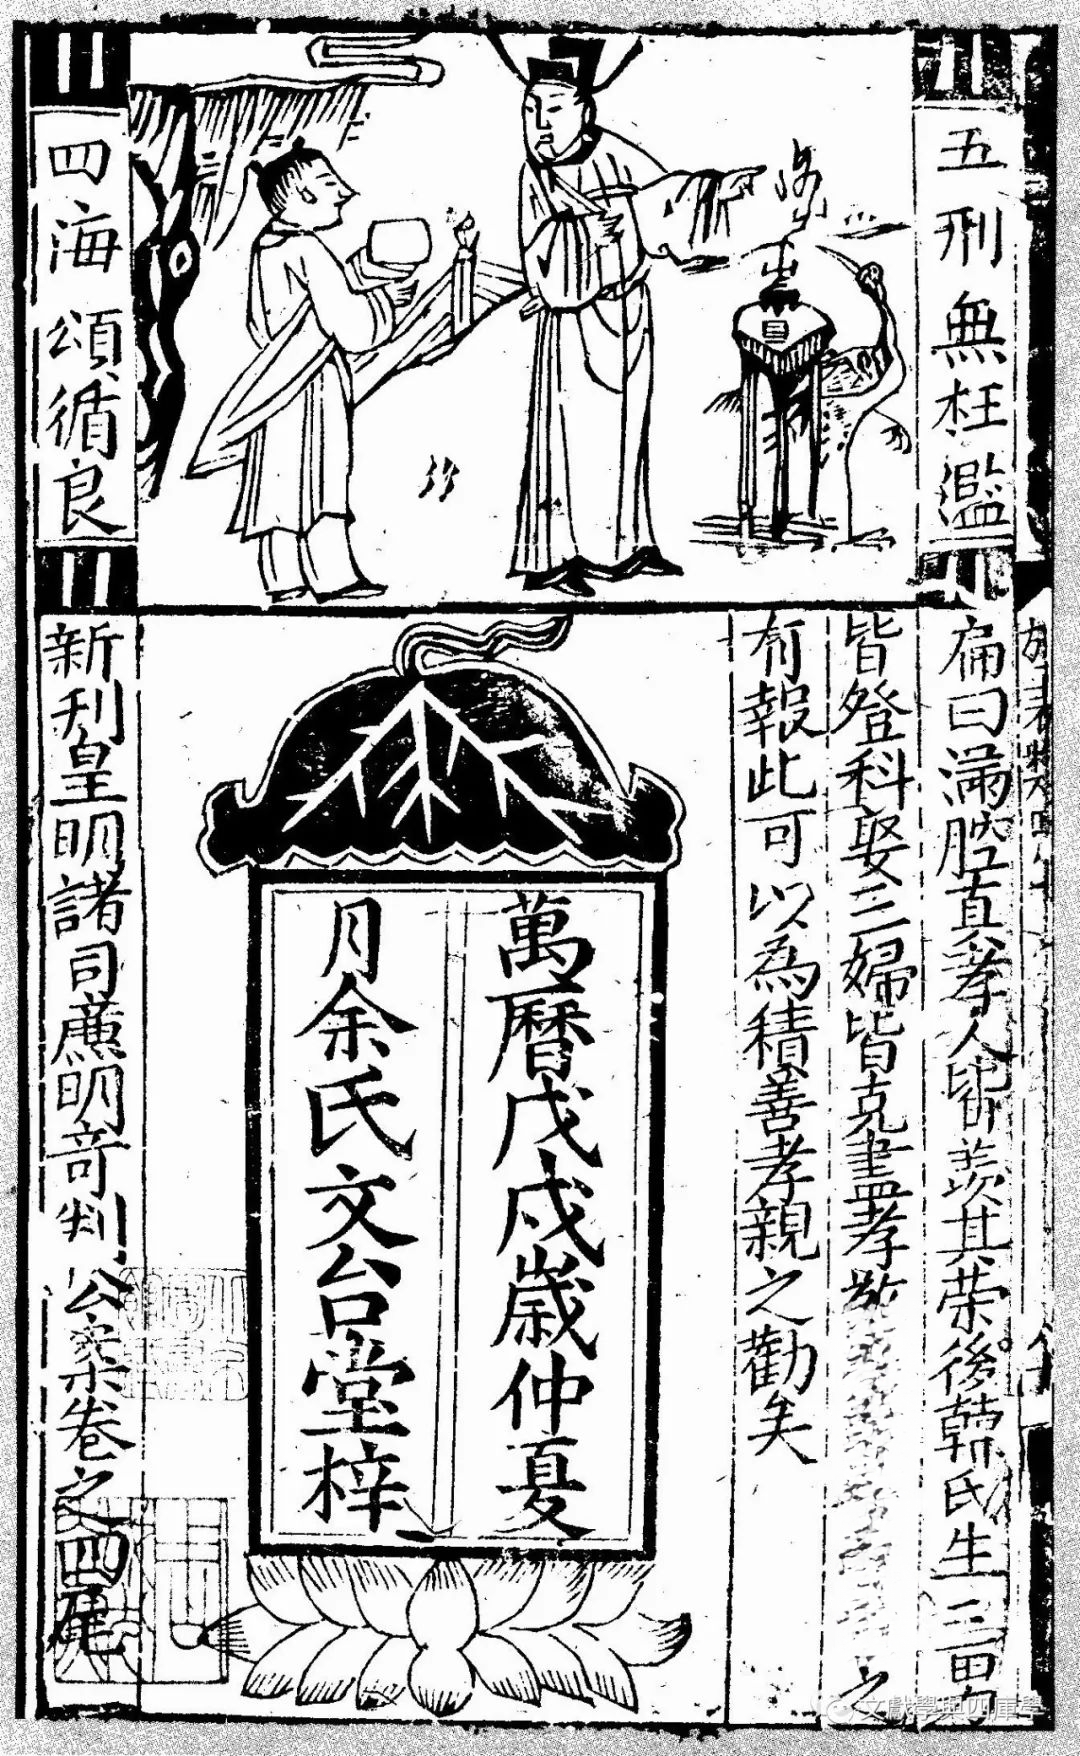 五刑無枉濫
四海頌循良
扁曰滿腔真孝人皆羨其榮後韓氏生三男
皆登科娶三婦皆克盡孝敬
之
有報此可以為積善孝親之勸矣
萬曆戊戌歲仲夏
月余氏文台堂梓
新刊皇明諸司廉明奇判公案卷之四尾
文獻學與四庫學